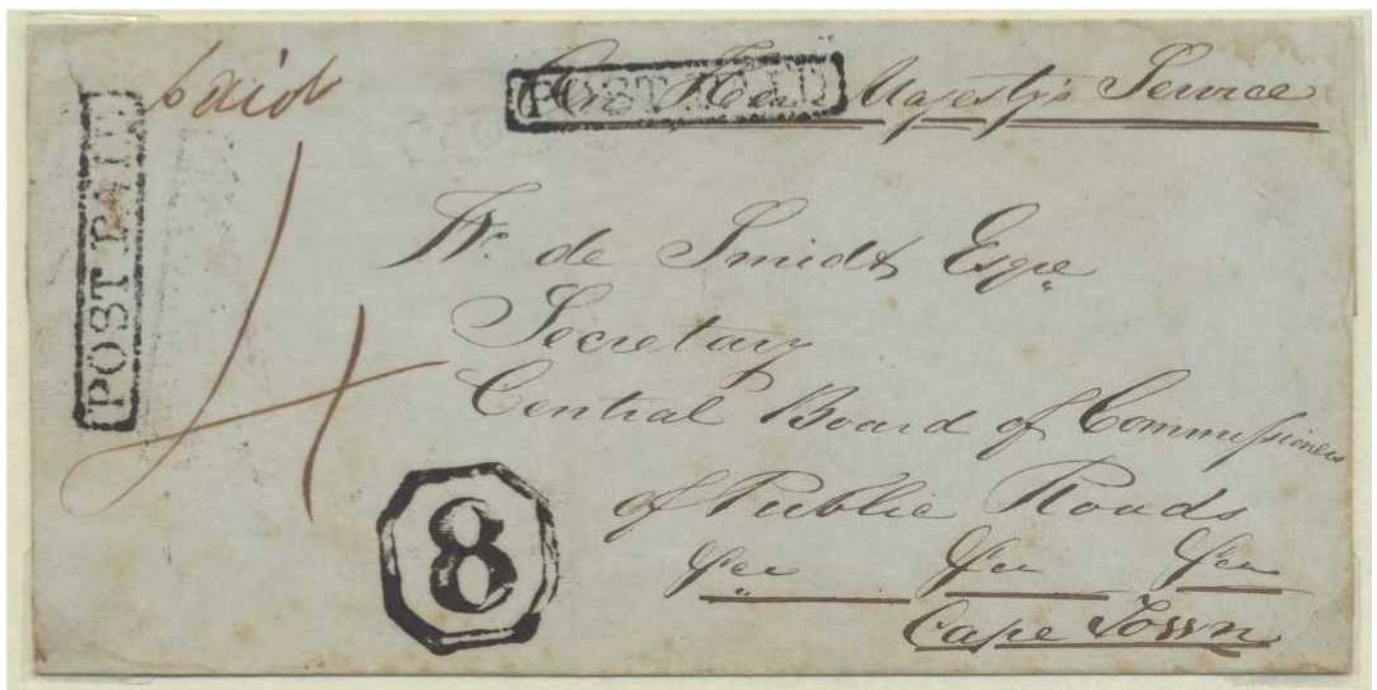 paid
POST PAID
On Her Majesty's Service
POST PAID
4
W. de Smidt Esqre
Secretary
Central Board of Commissioners
of Public Roads
&ca &ca &ca
Cape Town
8